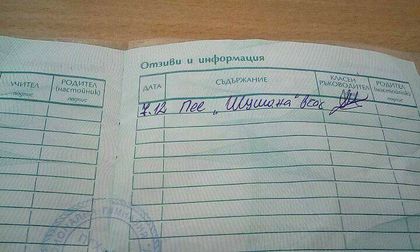 Отзиви и информация
УЧИТЕЛ
подпис
РОДИТЕЛ
(настойник)
подпис
ДАТА
СЪДЪРЖАНИЕ
КЛАСЕН
РЪКОВОДИТЕЛ
РОДИТЕЛ
(настойник)
7.12 Пее „Шушана" в час